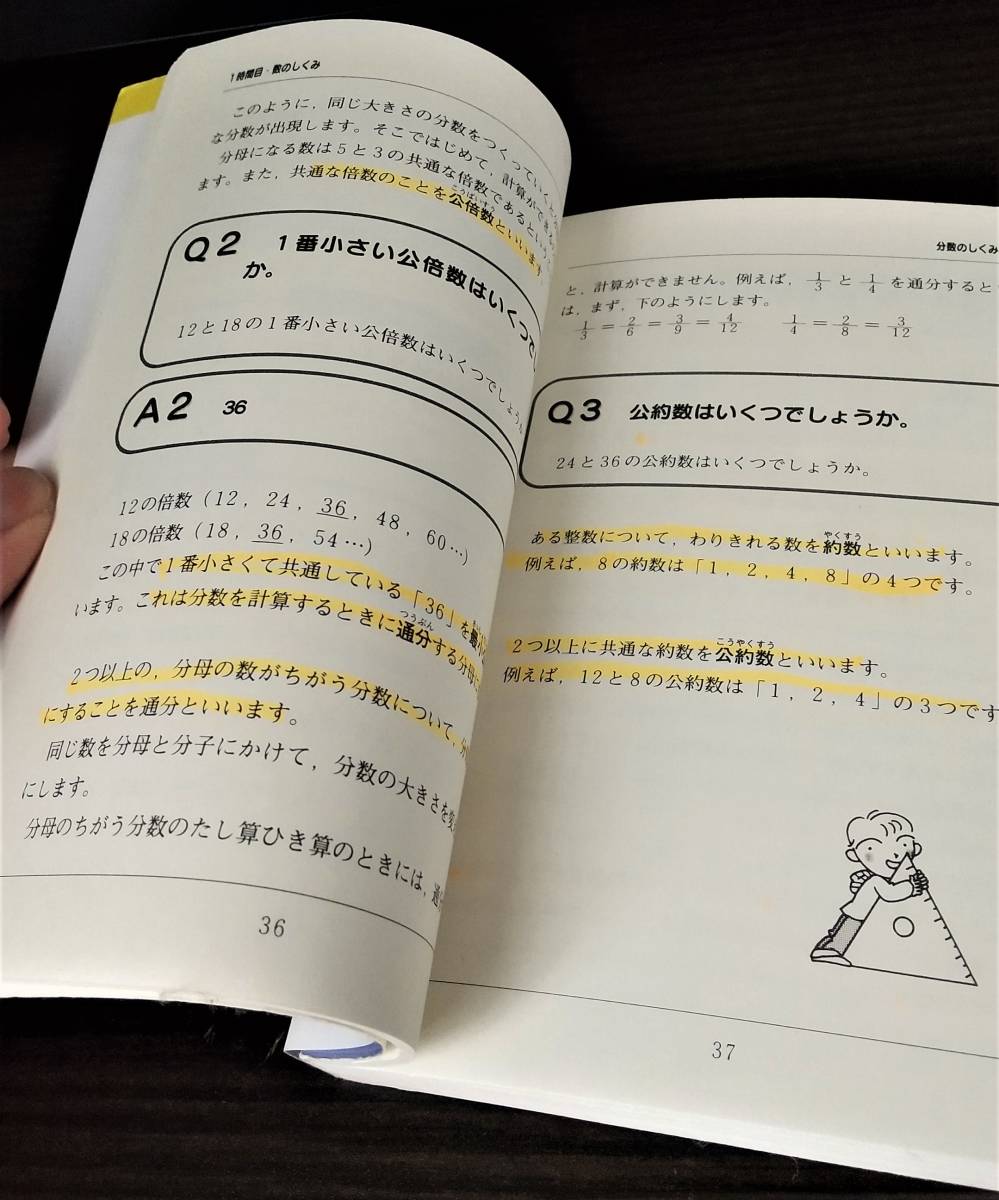 1時間目・数のしくみ
このように，同じ大きさの分数をつくっていくと
な分数が出現します。そこではじめて，計算ができる
分母になる数は5と3の共通な倍数であるという
ます。また，共通な倍数のことを公倍数といいます
こうばいすう
Q2 1番小さい公倍数はいくつで
か。
12と18の1番小さい公倍数はいくつでしょう
A2 36
12の倍数（12，24，36，48，60…）
18の倍数（18，36，54…）
この中で1番小さくて共通している「36」を最小
います。これは分数を計算するときに通分する分母に
つうぶん
2つ以上の，分母の数がちがう分数について，分
にすることを通分といいます。
同じ数を分母と分子にかけて，分数の大きさを変
にします。
分母のちがう分数のたし算ひき算のときには，通
36
分数のしくみ
と，計算ができません。例えば，1/3 と 1/4 を通分すると
は，まず，下のようにします。
1/3 = 2/6 = 3/9 = 4/12 1/4 = 2/8 = 3/12
Q3 公約数はいくつでしょうか。
24と36の公約数はいくつでしょうか。
やくすう
ある整数について，わりきれる数を約数といいます。
例えば，8の約数は「1，2，4，8」の4つです。
こうやくすう
2つ以上に共通な約数を公約数といいます。
例えば，12と8の公約数は「1，2，4」の3つです
37